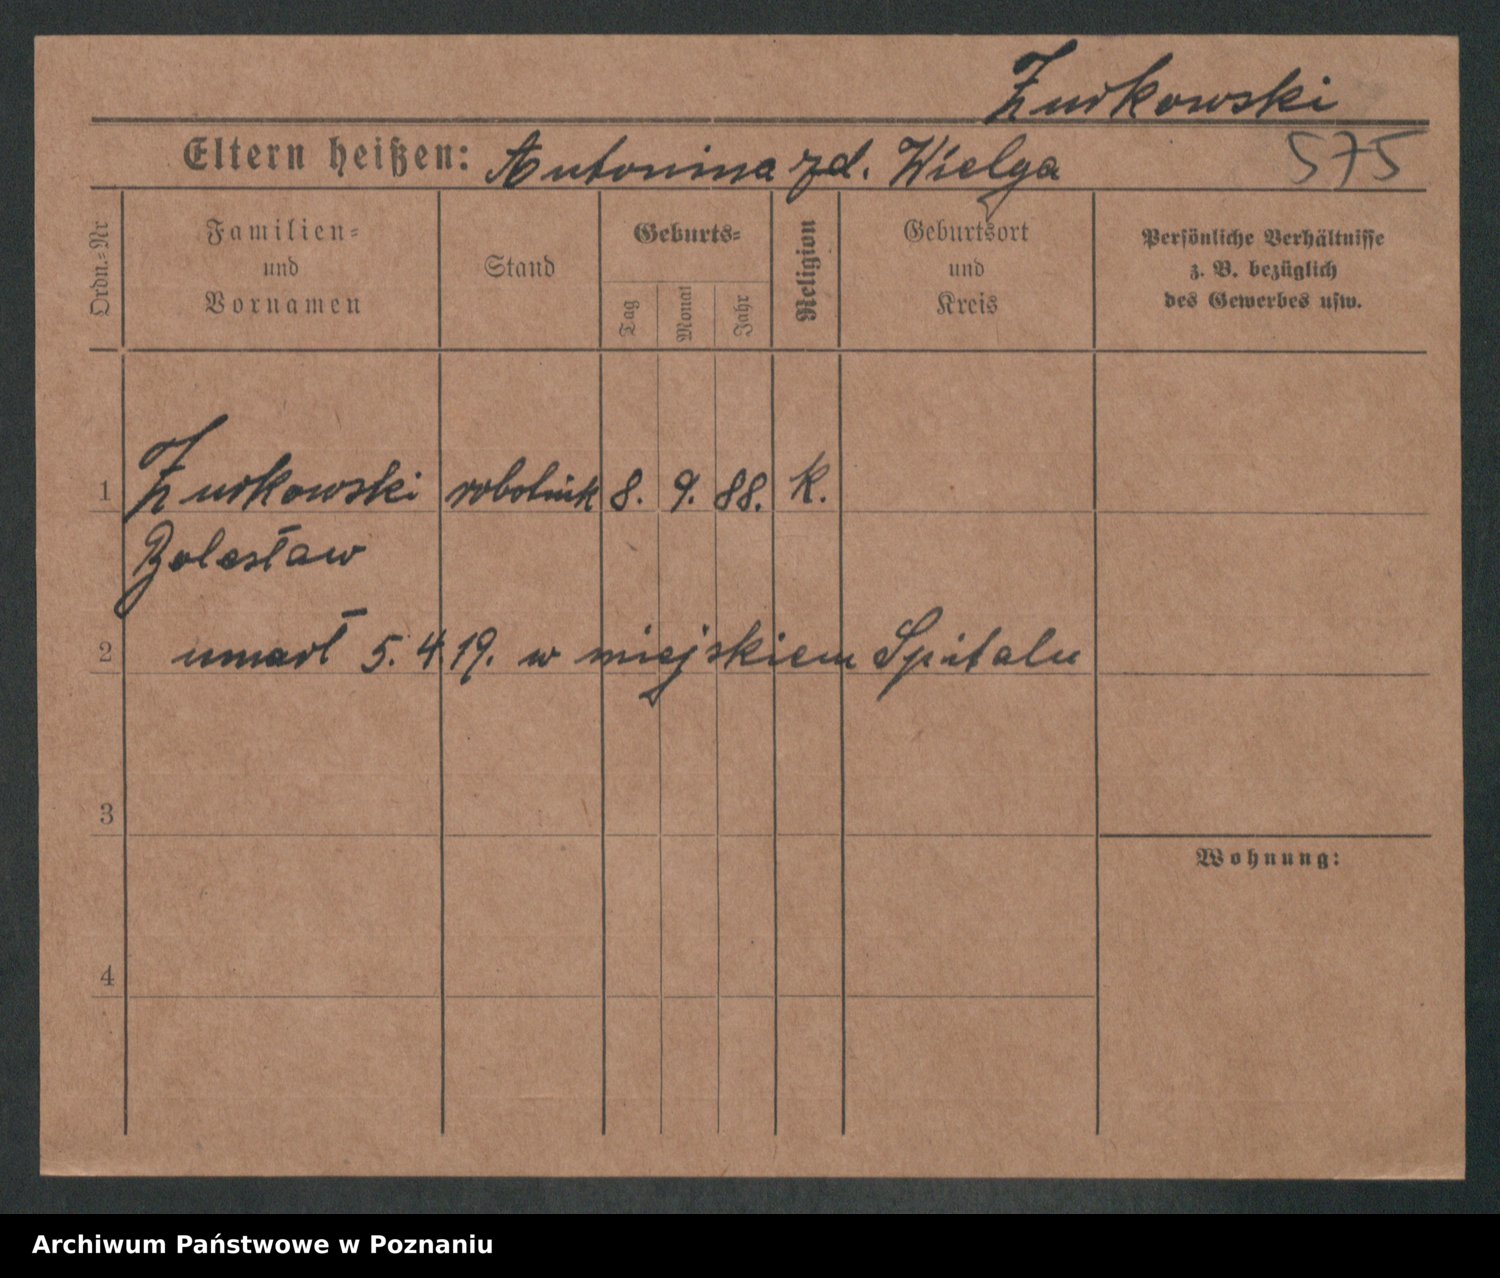 Żurkowski
Eltern heißen: Antonina zd. Wielga 575
Ordn.-Nr
Familien-
und
Vornamen
Stand
Geburts-
Tag
Monat
Jahr
Religion
Geburtsort
und
Kreis
Persönliche Verhältnisse
z. B. bezüglich
des Gewerbes usw.
1 Żurkowski robotnik 8. 9. 88. K.
Bolesław
2 umarł 5.4.19. w miejskiem Spitalu
3
Wohnung:
4
Archiwum Państwowe w Poznaniu